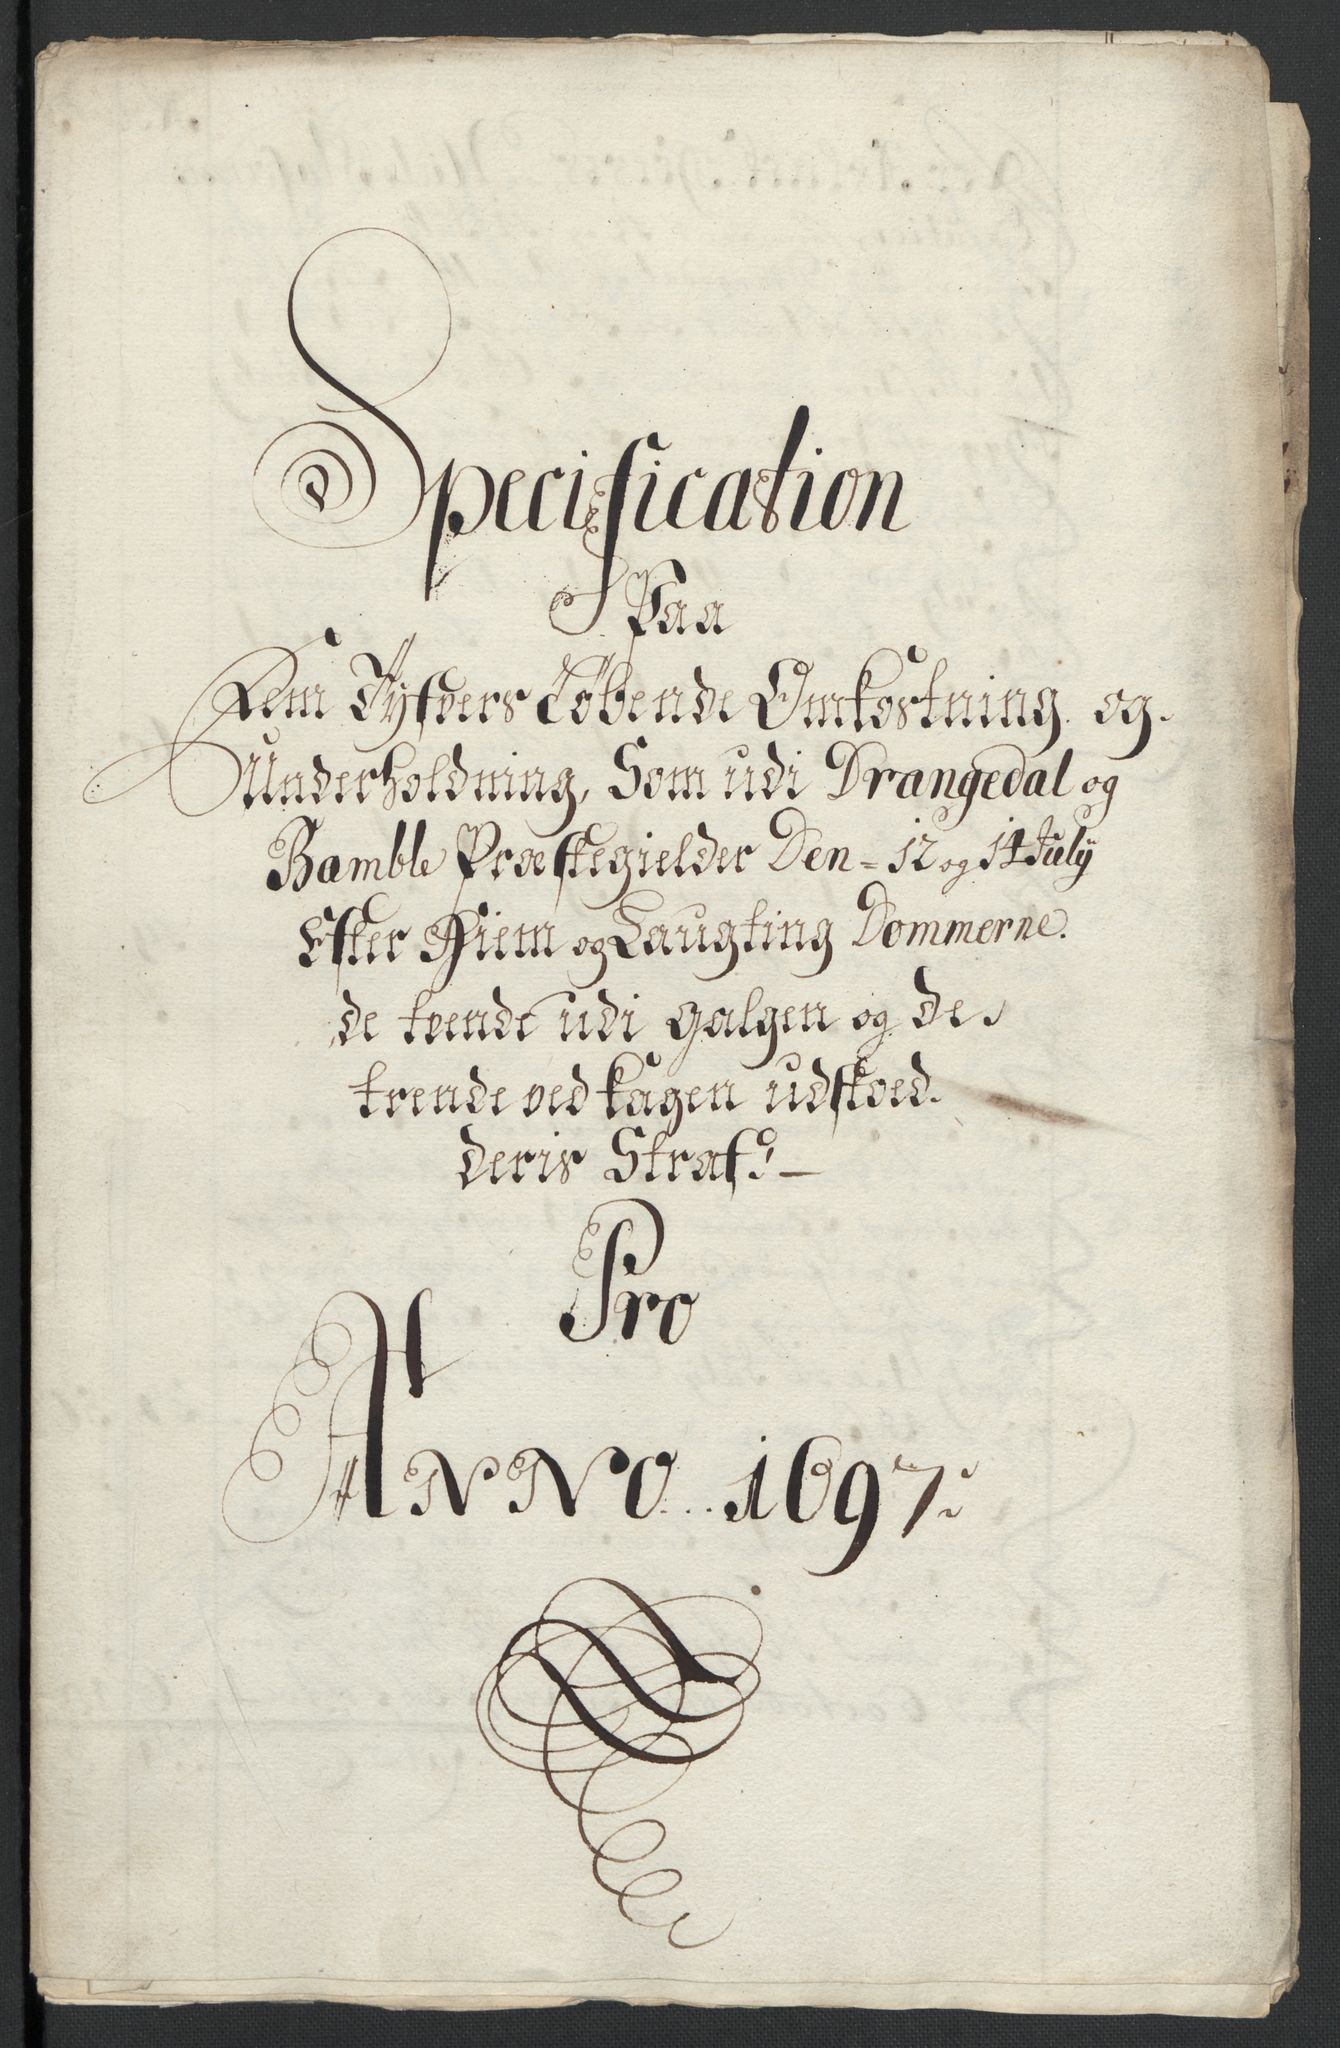 Specification
Paa
Fem Tyfvers Löbende Omkostning og
Underholdning, Som udi Drangedal og
Bamble Præstegielder Den = 12 og 14 July
Efter Hiem og Laugting Dommerne.
de tvende udi galgen og de
trende ved Kagen udstoed
deris Straf:
Pro
ANNO 1697: